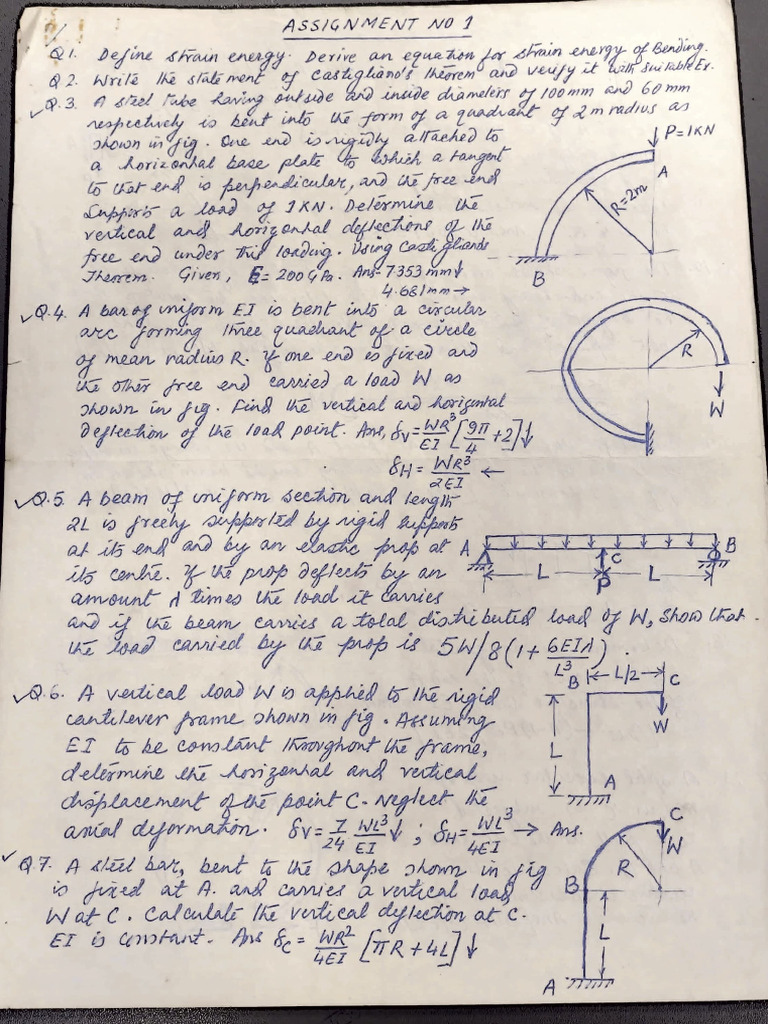 ASSIGNMENT NO 1
Q1. Define strain energy. Derive an equation for strain energy of Bending.
Q2. Write the statement of Castigliano's theorem and verify it with suitable Ex.
Q.3. A steel tube having outside and inside diameters of 100mm and 60mm
respectively is bent into the form of a quadrant of 2m radius as
shown in fig. One end is rigidly attached to
a horizontal base plate to which a tangent
to that end is perpendicular, and the free end
supports a load of 1KN. Determine the
vertical and horizontal deflections of the
free end under this loading. Using Castiglianos
Theorem. Given, E = 200GPa. Ans- 7.353mm↓
4.681mm →
P=1KN
A
R=2m
B
Q.4. A bar of uniform EI is bent into a circular
arc forming three quadrant of a circle
of mean radius R. If one end is fixed and
the other free end carried a load W as
shown in fig. Find the vertical and horizontal
deflection of the load point. Ans, δV = WR³/EI [9π/4 + 2]↓
δH = WR³/2EI ←
R
W
Q.5. A beam of uniform section and length
2L is freely supported by rigid supports
at its end and by an elastic prop at
its centre. If the prop deflects by an
amount λ times the load it carries
and if the beam carries a total distributed load of W, show that
the load carried by the prop is 5W/8(1 + 6EIλ/L³).
A
C
B
L
P
L
Q.6. A vertical load W is applied to the rigid
cantilever frame shown in fig. Assuming
EI to be constant throughout the frame,
determine the horizontal and vertical
displacement of the point C. Neglect the
axial deformation. δV = 7/24 WL³/EI ↓ ; δH = WL³/4EI → Ans.
B
L/2
C
W
L
A
Q.7. A steel bar, bent to the shape shown in fig
is fixed at A. and carries a vertical load
W at C. Calculate the vertical deflection at C.
EI is constant. Ans δC = WR²/4EI [πR + 4L]↓
C
W
R
B
L
A